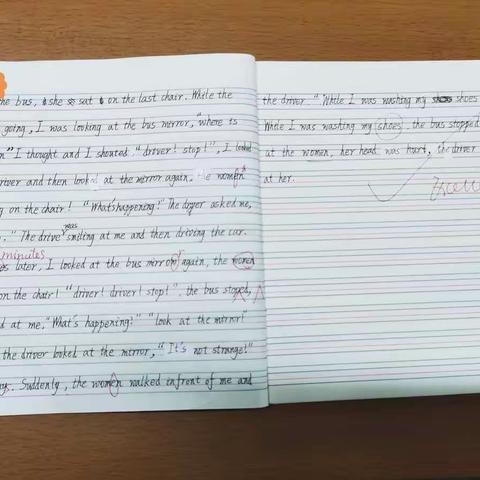 the bus, she sat on the last chair. While the
going, I was looking at the bus mirror, "where is
" I thought and I shouted. "driver! stop!", I looked
driver and then looked at the mirror again. the women
on the chair! "What's happening?" The driver asked me,
." The drive was smiling at me and then driving the car.
minutes
later, I looked at the bus mirror again, the women
on the chair! "driver! driver! stop!". the bus stoped,
at me. "What's happening?" "look at the mirror!"
the driver looked at the mirror, "It's not strange!"
Suddenly, the women walked infront of me and
the driver. "While I was washing my shoes
While I was washing my shoes, the bus stopped
at the women, her head was hurt, the driver
at her.